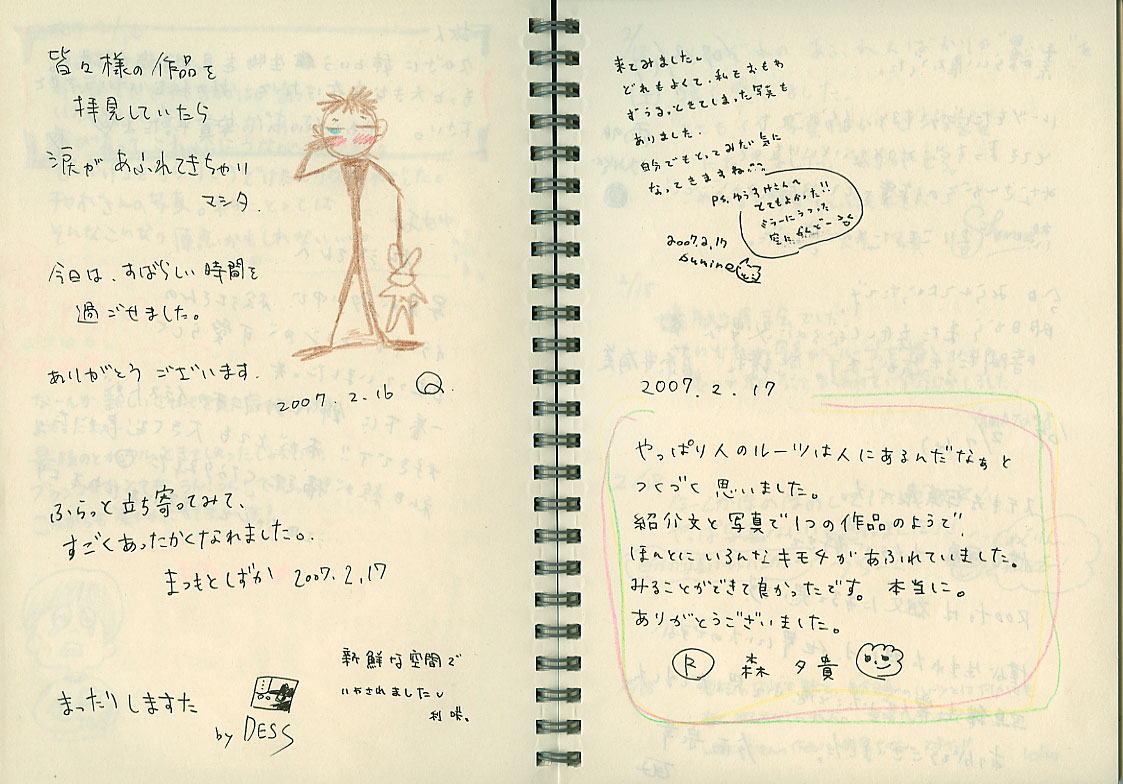 皆々様の作品を
拝見していたら
涙があふれてきちゃい
マシタ.
今日は、すばらしい時間を
過ごせました。
ありがとう ございます.
2007.2.16 Q.
ふらっと立ち寄ってみて、
すごくあったかくなれました。.
まつもとしずか 2007.2.17
まったりしますた
by DESS
新鮮な空間で
いやされました。
利咲。
来てみました。
どれもよくて、私もおもわ
ずうるっときてしまった写真も
ありました.
自分でもとってみた気に
なってきますね
P.S. ゆうすけさんへ
とてもよかった!!
2007.2.17
sunine
2007.2.17
やっぱり人のルーツは人にあるんだなぁと
つくづく思いました。
紹介文と写真で1つの作品のようで、
ほんとにいろんなキモチがあふれていました。
みることができて良かったです。本当に。
ありがとうございました。
R 森 夕貴